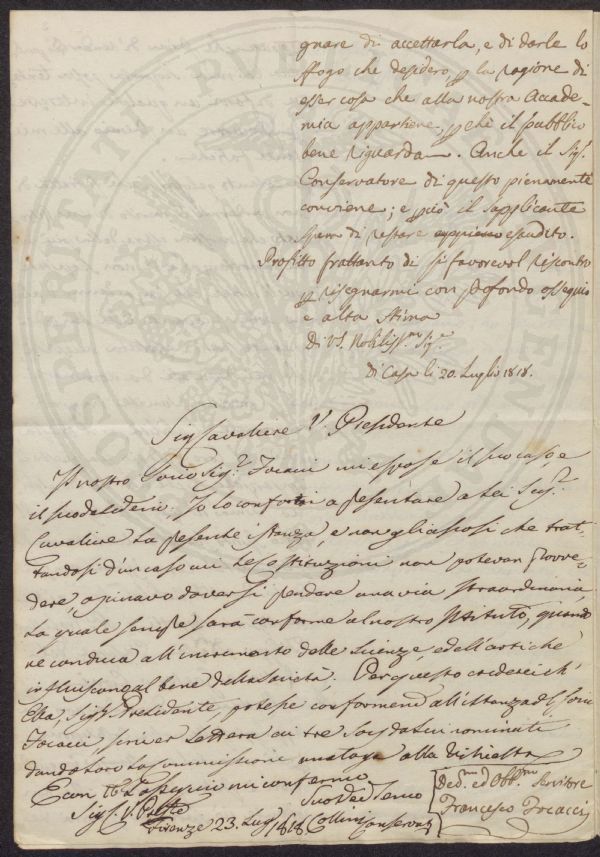 gnare di accettarla, e di darle lo
sfogo che desidero, p la ragione di
esser cosa che alla nostra Accade-
mia appartiene, p che il pubblico
bene riguarda. Anche il Sig.
Conservatore di questo pienamente
conviene; e p ciò il supplicante
spera di restare esaudito.
Profitto frattanto di sì favorevol riscontro
p risegnarmi con profondo ossequio
e alta stima
Di VS. Nobiliss.ma Sig.e
di Casa li 20. Luglio 1818.
Sig Cavaliere V. Presidente
Il nostro Socio Sig.r Focacci mi espose il suo caso, e
il suo desiderio. Io lo confortai a presentare a Lei Sig.r
Cavaliere la presente istanza, e non gli ascosi che trat-
tandosi d'un caso cui le Costituzioni non potevan provve-
dere, opinavo doversi prendere una via straordinaria
la quale sempre sarà conforme al nostro Istituto, quando
ne conduca all'incremento delle scienze, e dell'arti che
influiscon al bene della società. Per questo crederei ch'
Ella, Sig.r Presidente, potesse conformemente all'istanza del Socio
Focacci, scriver lettera ai tre Soci da lui nominati
dando loro la commissione analoga alla richiesta
E con ossequio mi confermo
Sig. V. Presid.te
Firenze 23. Lug. 1818
Suo Dev Servo
Collini Conservat.
Dev.mo ed Obb.mo Servitore
Francesco Focacci